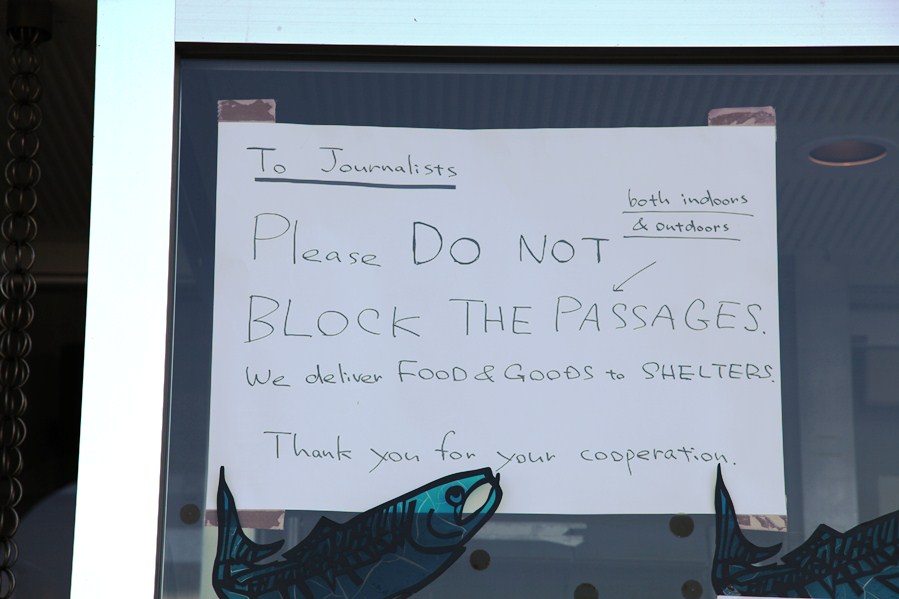 To Journalists
both indoors
& outdoors
Please DO NOT
BLOCK THE PASSAGES.
We deliver FOOD & GOODS to SHELTERS.
Thank you for your cooperation.